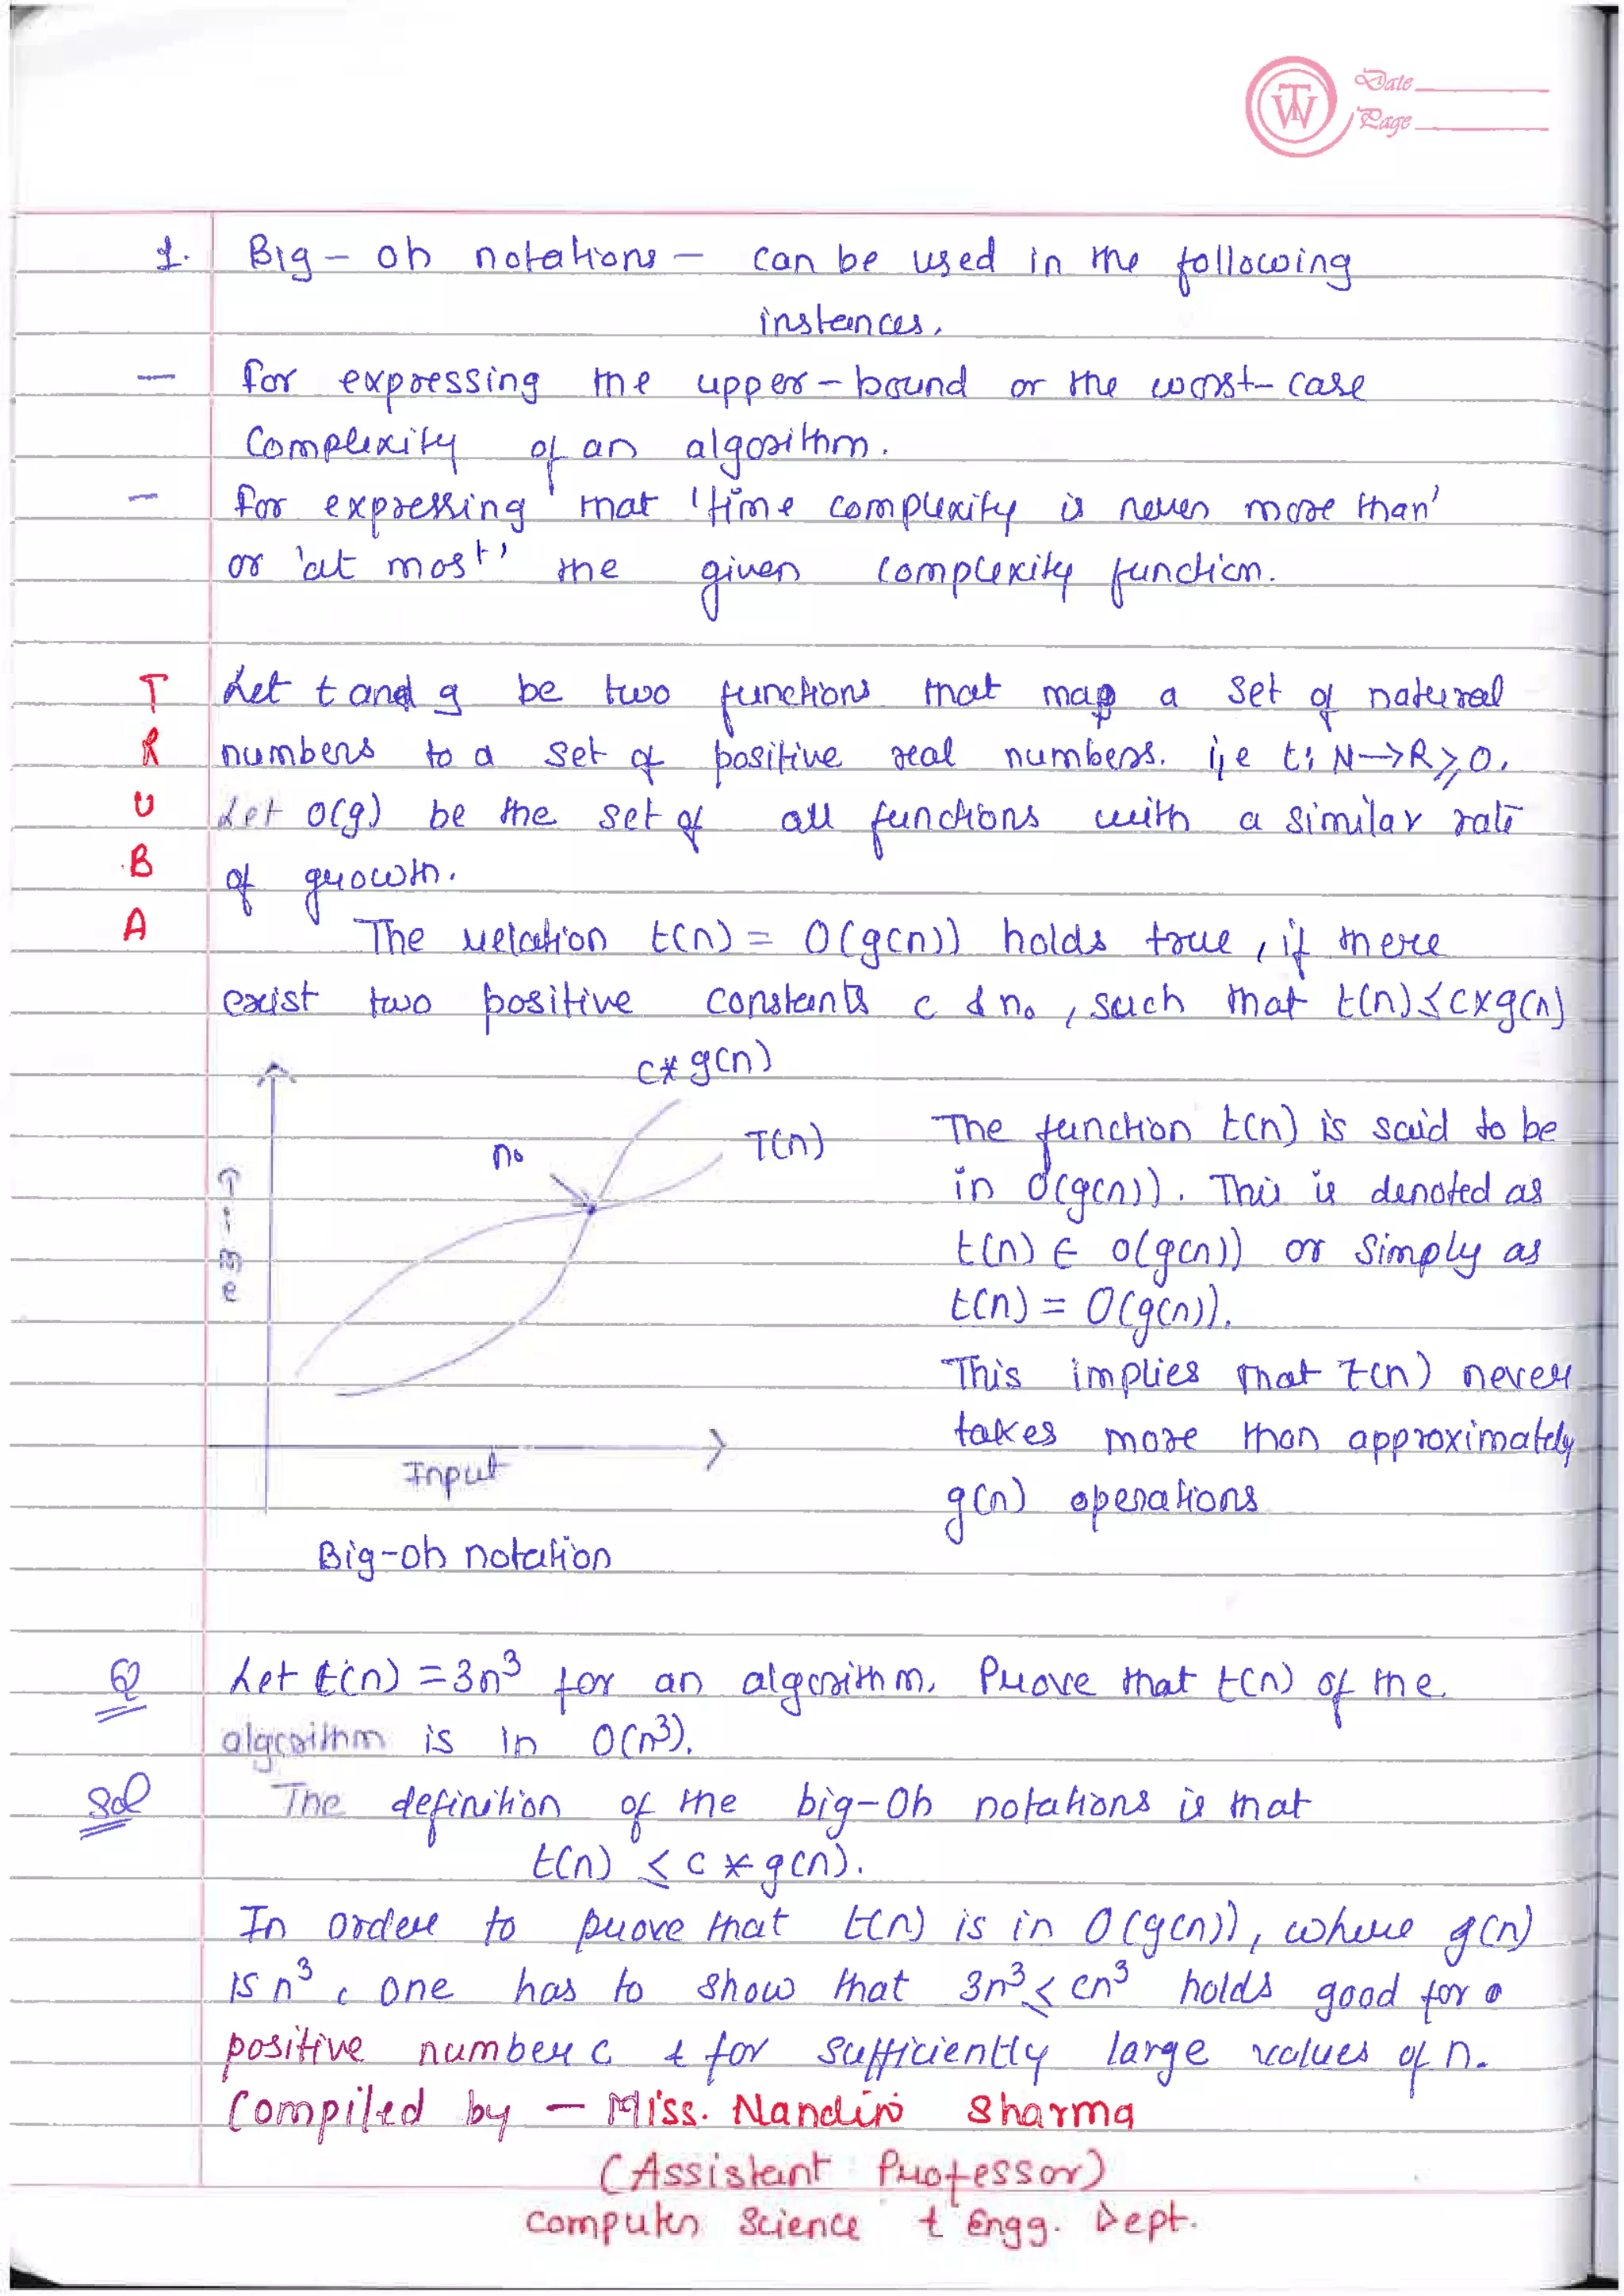 TW Date
Page
1. Big - oh notations - can be used in the following
instances,
- for expressing the upper-bound or the worst-case
Complexity of an algorithm.
- For expressing that 'time complexity is never more than'
or 'at most' the given complexity function.
T Let t and g be two functions that map a set of natural
R numbers to a set of positive real numbers. i,e t: N→R≥0.
U Let O(g) be the set of all functions with a similar rate
B of growth.
A The relation t(n) = O(g(n)) holds true, if there
exist two positive constants c & n₀, such that t(n)≤c×g(n)
c*g(n)
n₀ T(n)
Time
Input
Big-oh notation
The function t(n) is said to be
in O(g(n)). This is denoted as
t(n) ∈ O(g(n)) or simply as
t(n) = O(g(n)).
This implies that t(n) never
takes more than approximately
g(n) operations
Q Let t(n) = 3n³ for an algorithm. Prove that t(n) of the
algorithm is in O(n³).
Sol The definition of the big-Oh notations is that
t(n) ≤ c * g(n).
In order to prove that t(n) is in O(g(n)), where g(n)
is n³, one has to show that 3n³ ≤ cn³ holds good for a
positive number c & for sufficiently large values of n.
Compiled by - Miss. Nandini Sharma
(Assistant Professor)
Computer Science & Engg. Dept.